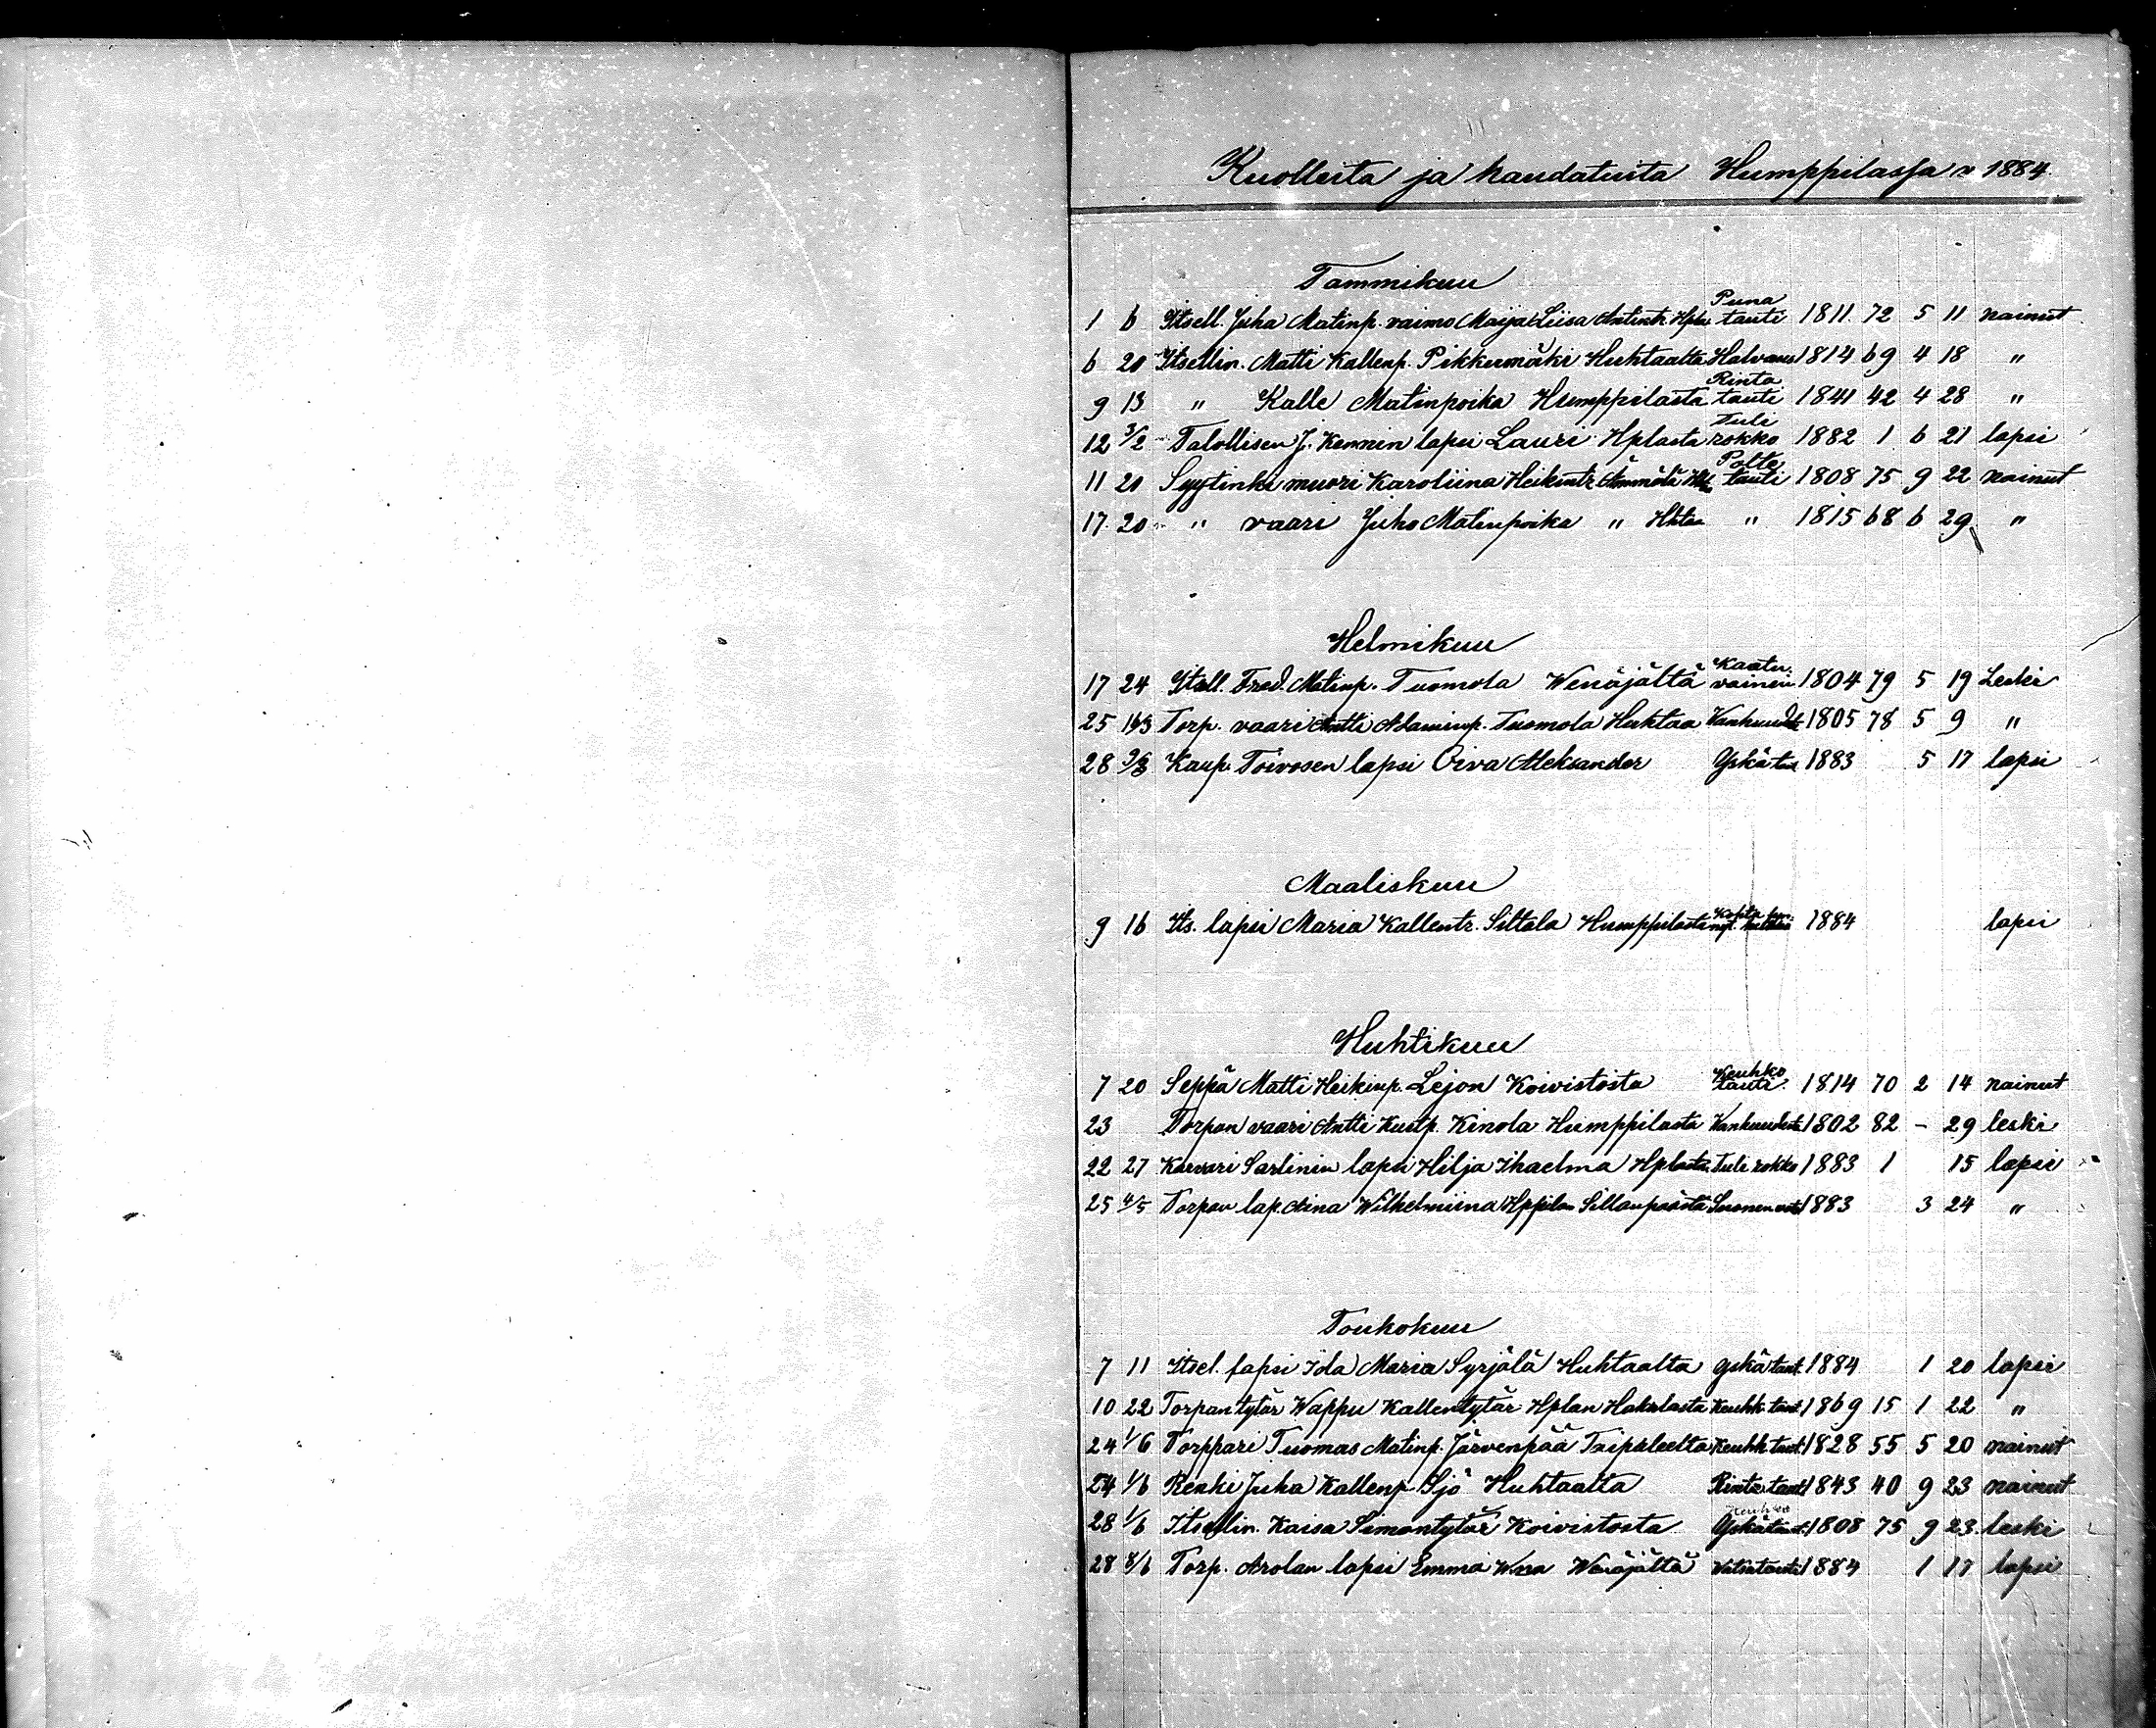 Kuolleita ja haudatuita Humppilassa v 1884.
Tammikuu
1 6 Itsell. Juha Matinp. vaimo Maija Liisa Antintr. Hpla Puna tauti 1811. 72 5 11 nainut
6 20 Itsellin. Matti Kallenp. Pikkumäki Huhtaalta Halvaus 1814 69 4 18 "
9 13 " Kalle Matinpoika Humppilasta Rinta tauti 1841 42 4 28 "
12 3/2 Talollisen J. Kennin lapsi Lauri Hplasta Tuli rokko 1882 1 6 21 lapsi
11 20 Syytinki muori Karoliina Heikintr. Ämmälä Polte tauti 1808 75 9 22 nainut
17 20 " vaari Juho Matinpoika " Hhtaa " 1815 68 6 29 "
Helmikuu
17 24 Itsell. Fred. Matinp. Tuomola Wenäjältä Kaatu vainen 1804 79 5 19 Leski
25 16/3 Torp. vaari Antti Adaminp. Tuomola Huhtaa Vanhuud. 1805 78 5 9 "
28 9/3 Kaup. Toivosen lapsi Oiva Aleksander Yskä taut 1883 5 17 lapsi
Maaliskuu
9 16 Its. lapsi Maria Kallentr. Siltala Humppilasta 1884 lapsi
Huhtikuu
7 20 Seppä Matti Heikinp. Lejon Koivistosta Keuhko tauti 1814 70 2 14 nainut
23 Torpan vaari Antti Kustp. Kinola Humppilasta Vanhuudesta 1802 82 - 29 leski
22 27 Karvari Sarlinin lapsi Hilja Ihaelma Hplasta Tuli rokko 1883 1 15 lapsi
25 4/5 Torpan lap. Aina Wilhelmiina Hppilan Sillanpäästä Suonenvet. 1883 3 24 "
Toukokuu
7 11 Itsel. lapsi Ida Maria Syrjälä Huhtaalta Yskä taut. 1884 1 20 lapsi
10 22 Torpan tytär Wappu Kallentytär Hplan Hakalasta Keuhk. taut. 1869 15 1 22 "
24 1/6 Torppari Tuomas Matinp. Järvenpää Taipaleelta Keuhk. taut. 1828 55 5 20 nainut
24 1/6 Renki Juha Kallenp. Sjö Huhtaalta Rinta taut. 1843 40 9 23 nainut
28 1/6 Itsellin. Kaisa Simontytär Koivistosta Keuhko Yskä taut. 1808 75 9 23. leski
28 8/6 Torp. Arolan lapsi Emma Wera Wenäjältä Vatsatauti 1884 1 17 lapsi